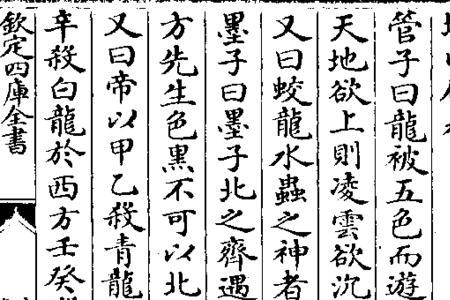 管子曰龍被五色而遊
天地欲上則凌雲欲沉
又曰蛟龍水蟲之神者
墨子曰墨子北之齊遇
方先生色黑不可以北
又曰帝以甲乙殺青龍
辛殺白龍於西方壬癸
欽定四庫全書